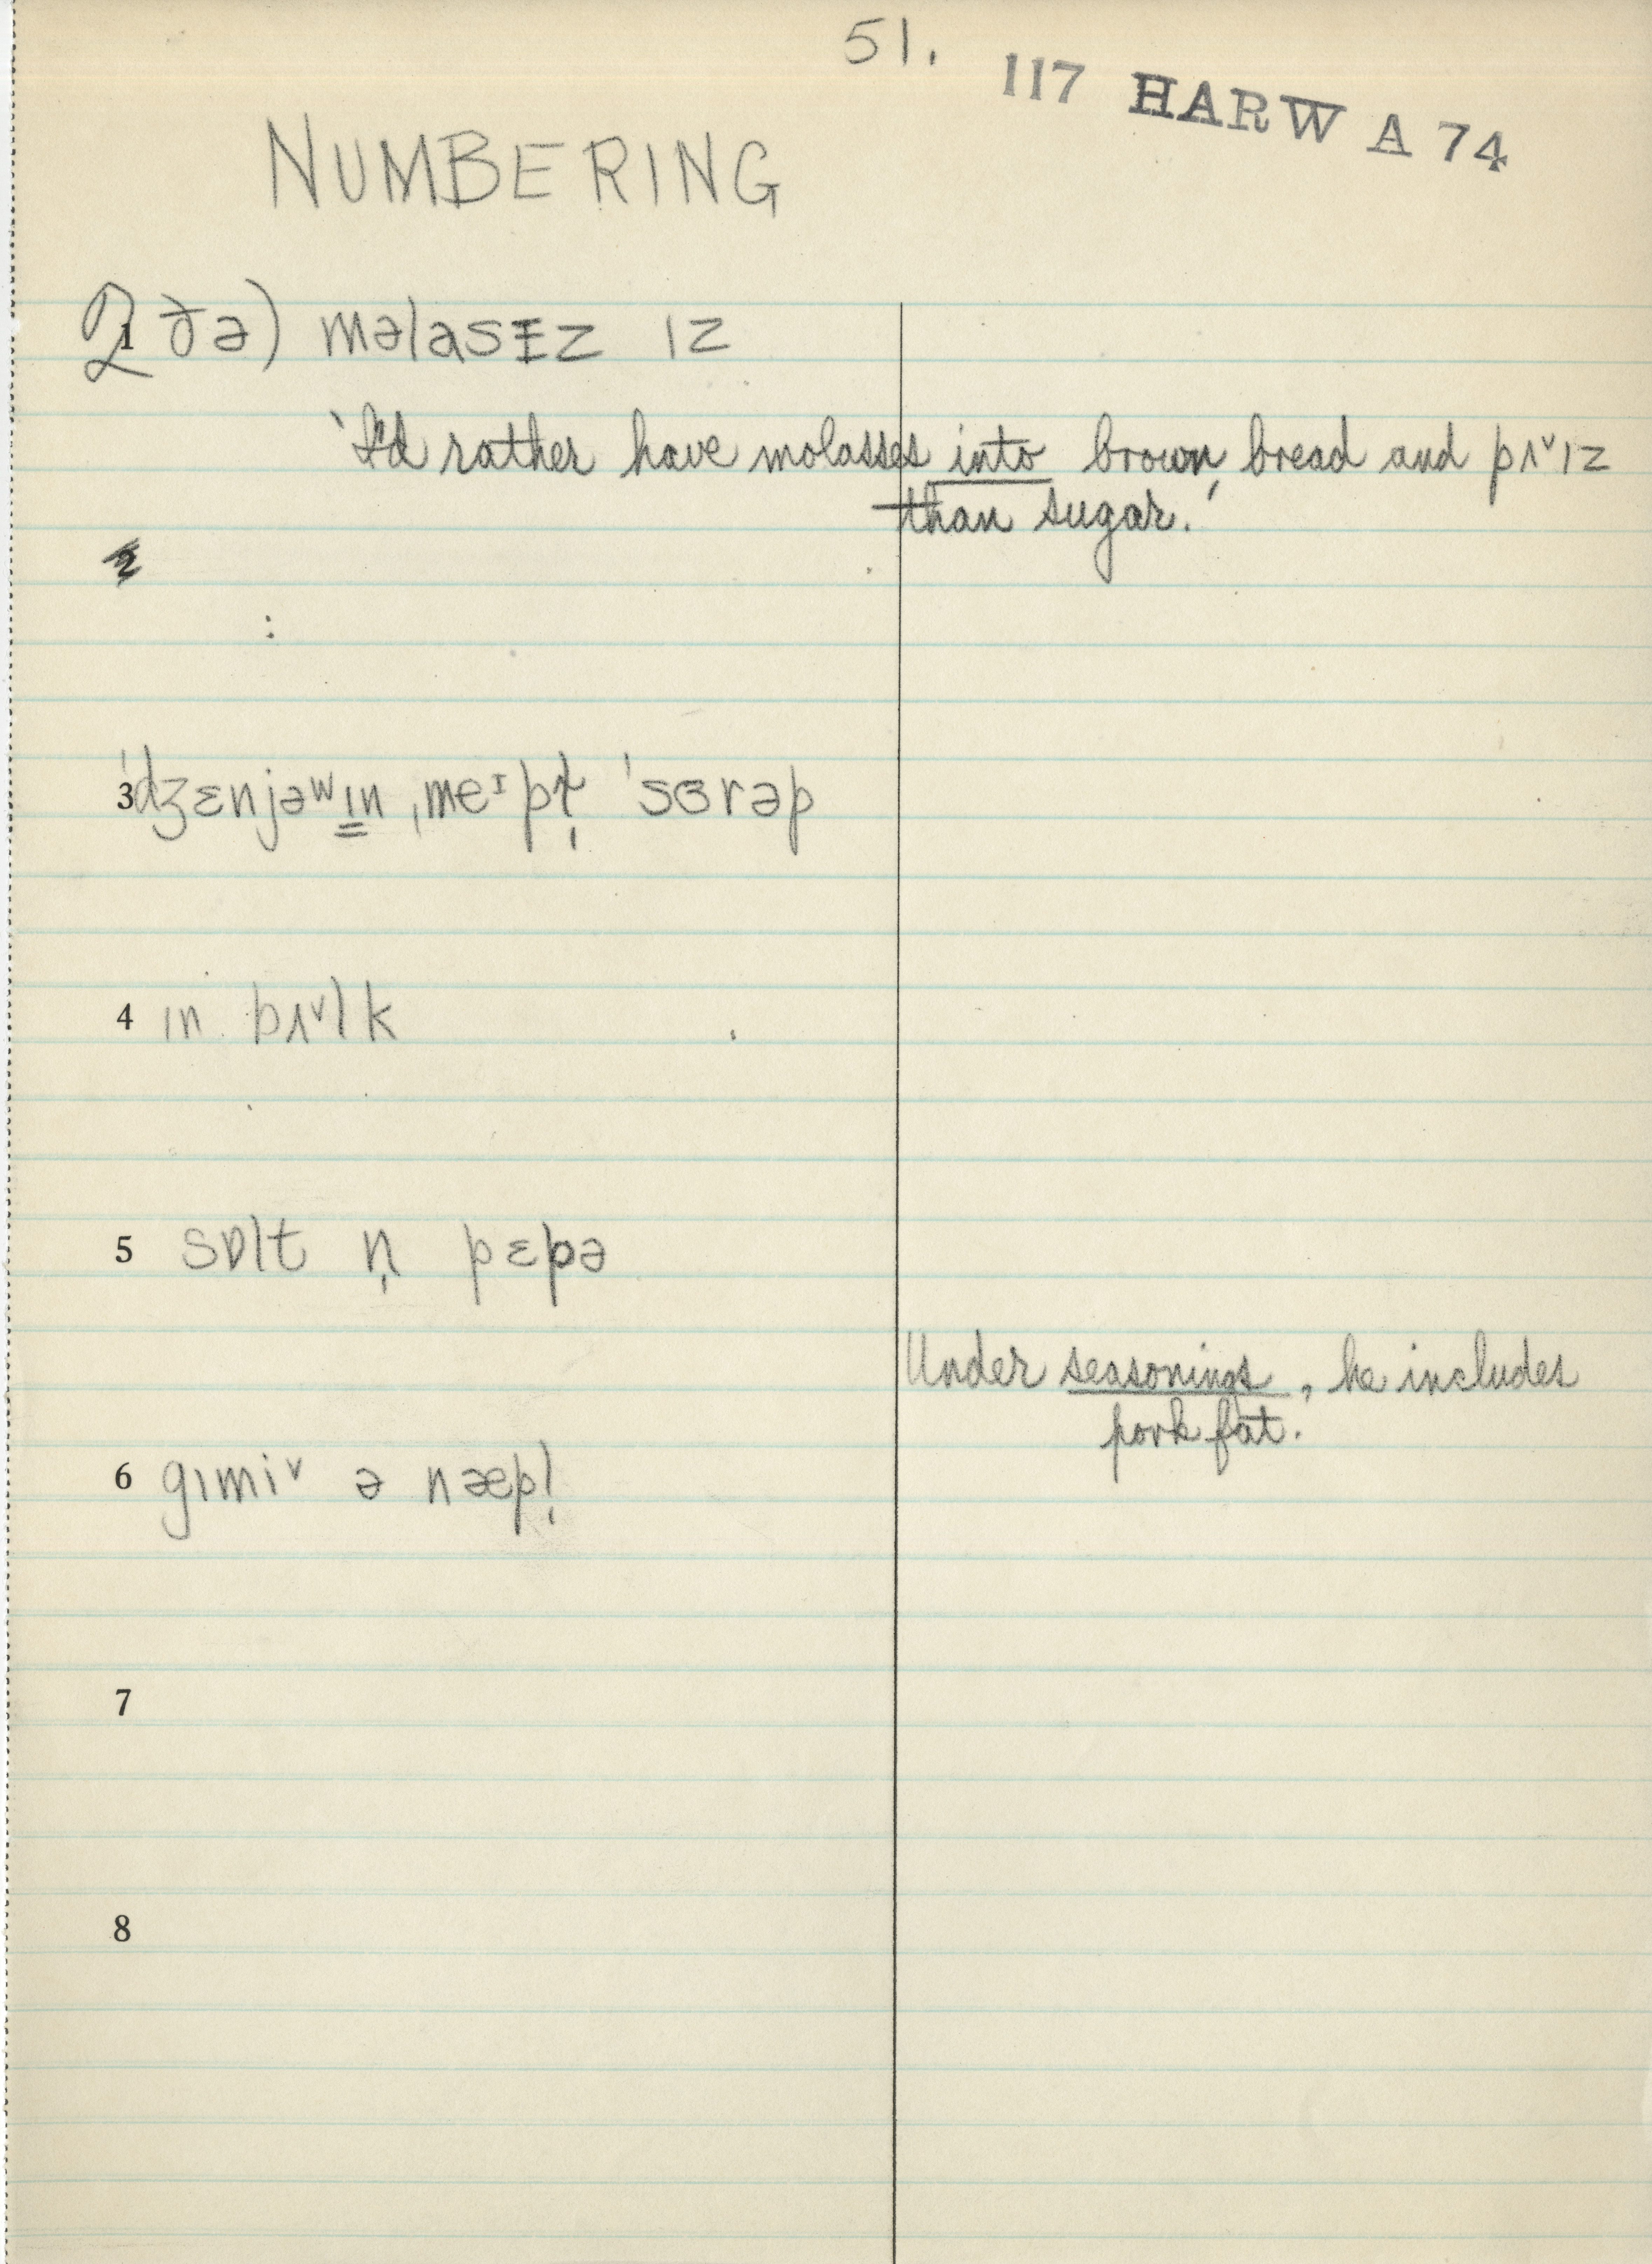 51.
117 HARW A 74
NUMBERING
2 1 ðə) məlasɪz ɪz
'I'd rather have molasses into brown bread and pʌˇɪz
than sugar.'
2
3 ˈdʒɛnjəʷɪn ˌmeᶦpl̩ ˈsɜrəp
4 ɪn bʌˇlk
5 sɒlt n̩ pɛpə
Under seasonings, he includes
pork fat.
6 gɪmiˇ ə næpl̩
7
8